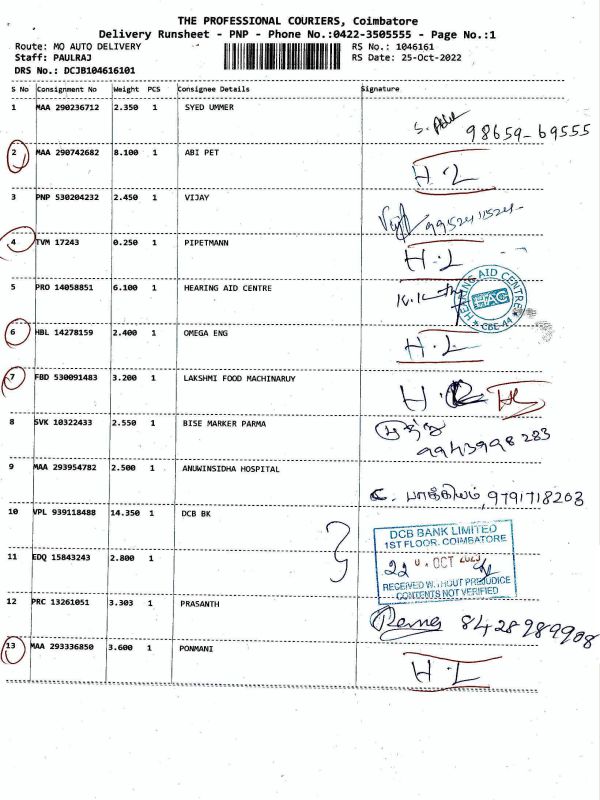 THE PROFESSIONAL COURIERS, Coimbatore
Delivery Runsheet - PNP - Phone No.:0422-3505555 - Page No.:1
Route: MO AUTO DELIVERY RS No.: 1046161
Staff: PAULRAJ RS Date: 25-Oct-2022
DRS No.: DCJB104616101
S No Consignment No Weight PCS Consignee Details Signature
1 MAA 290236712 2.350 1 SYED UMMER
98659-69555
2 MAA 290742682 8.100 1 ABI PET
H.L
3 PNP 530204232 2.450 1 VIJAY
4 TVM 17243 0.250 1 PIPETMANN
H.L
5 PRO 14058851 6.100 1 HEARING AID CENTRE
HEARING AID CENTRE
HAC
CBE-44
6 HBL 14278159 2.400 1 OMEGA ENG
H.L
7 FBD 530091483 3.200 1 LAKSHMI FOOD MACHINARUY
H.
8 SVK 10322433 2.550 1 BISE MARKER PARMA
முத்து
9943998283
9 MAA 293954782 2.500 1 ANUWINSIDHA HOSPITAL
பாக்கியம், 9791718203
10 VPL 939118488 14.350 1 DCB BK
DCB BANK LIMITED
1ST FLOOR, COIMBATORE
11 EDQ 15843243 2.800 1
OCT
RECEIVED WITHOUT PREJUDICE
CONTENTS NOT VERIFIED
12 PRC 13261051 3.303 1 PRASANTH
8428989908
13 MAA 293336850 3.600 1 PONMANI
H.L